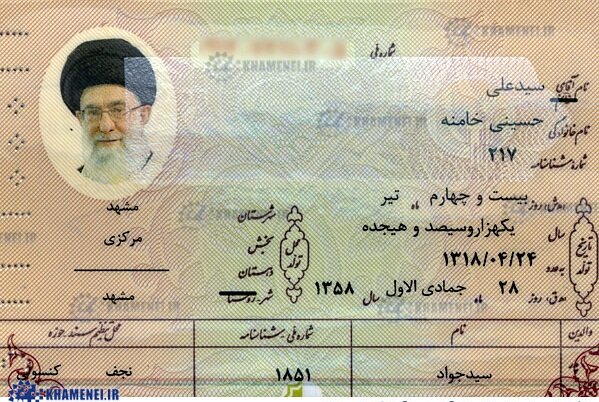 KHAMENEI.IR
شماره ملی
نام آقای سیدعلی
نام خانوادگی حسینی خامنه
شماره شناسنامه ۲۱۷
تاریخ تولد
(ه‍.ش) روز بیست و چهارم ماه تیر
سال یکهزاروسیصد و هیجده
به عدد ۱۳۱۸/۰۴/۲۴
(ه‍.ق) روز ۲۸ ماه جمادی الاول سال ۱۳۵۸
محل تولد
شهرستان مشهد
بخش مرکزی
دهستان
شهر روستا مشهد
والدین نام شماره ملی شناسنامه محل تنظیم سند حوزه
سیدجواد ۱۸۵۱ نجف کنسولی
KHAMENEI.IR